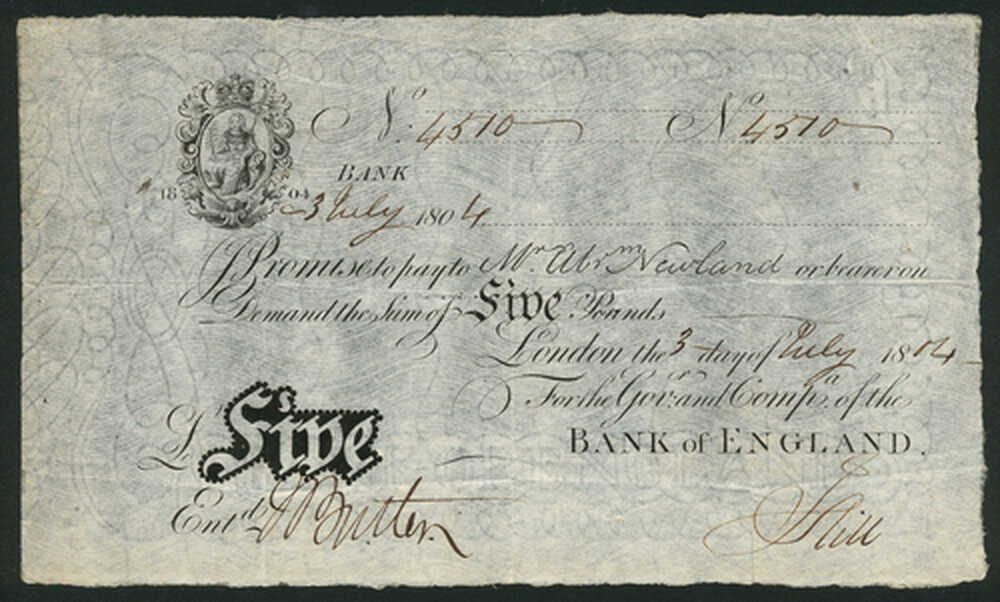 No. 4510 No 4510
BANK
18 04
3 July 1804
I Promise to pay to Mr. Abrm Newland or bearer on
Demand the Sum of Five Pounds
London the 3 day of July 1804
For the Govr. and Compa. of the
BANK of ENGLAND.
£ Five
Entd